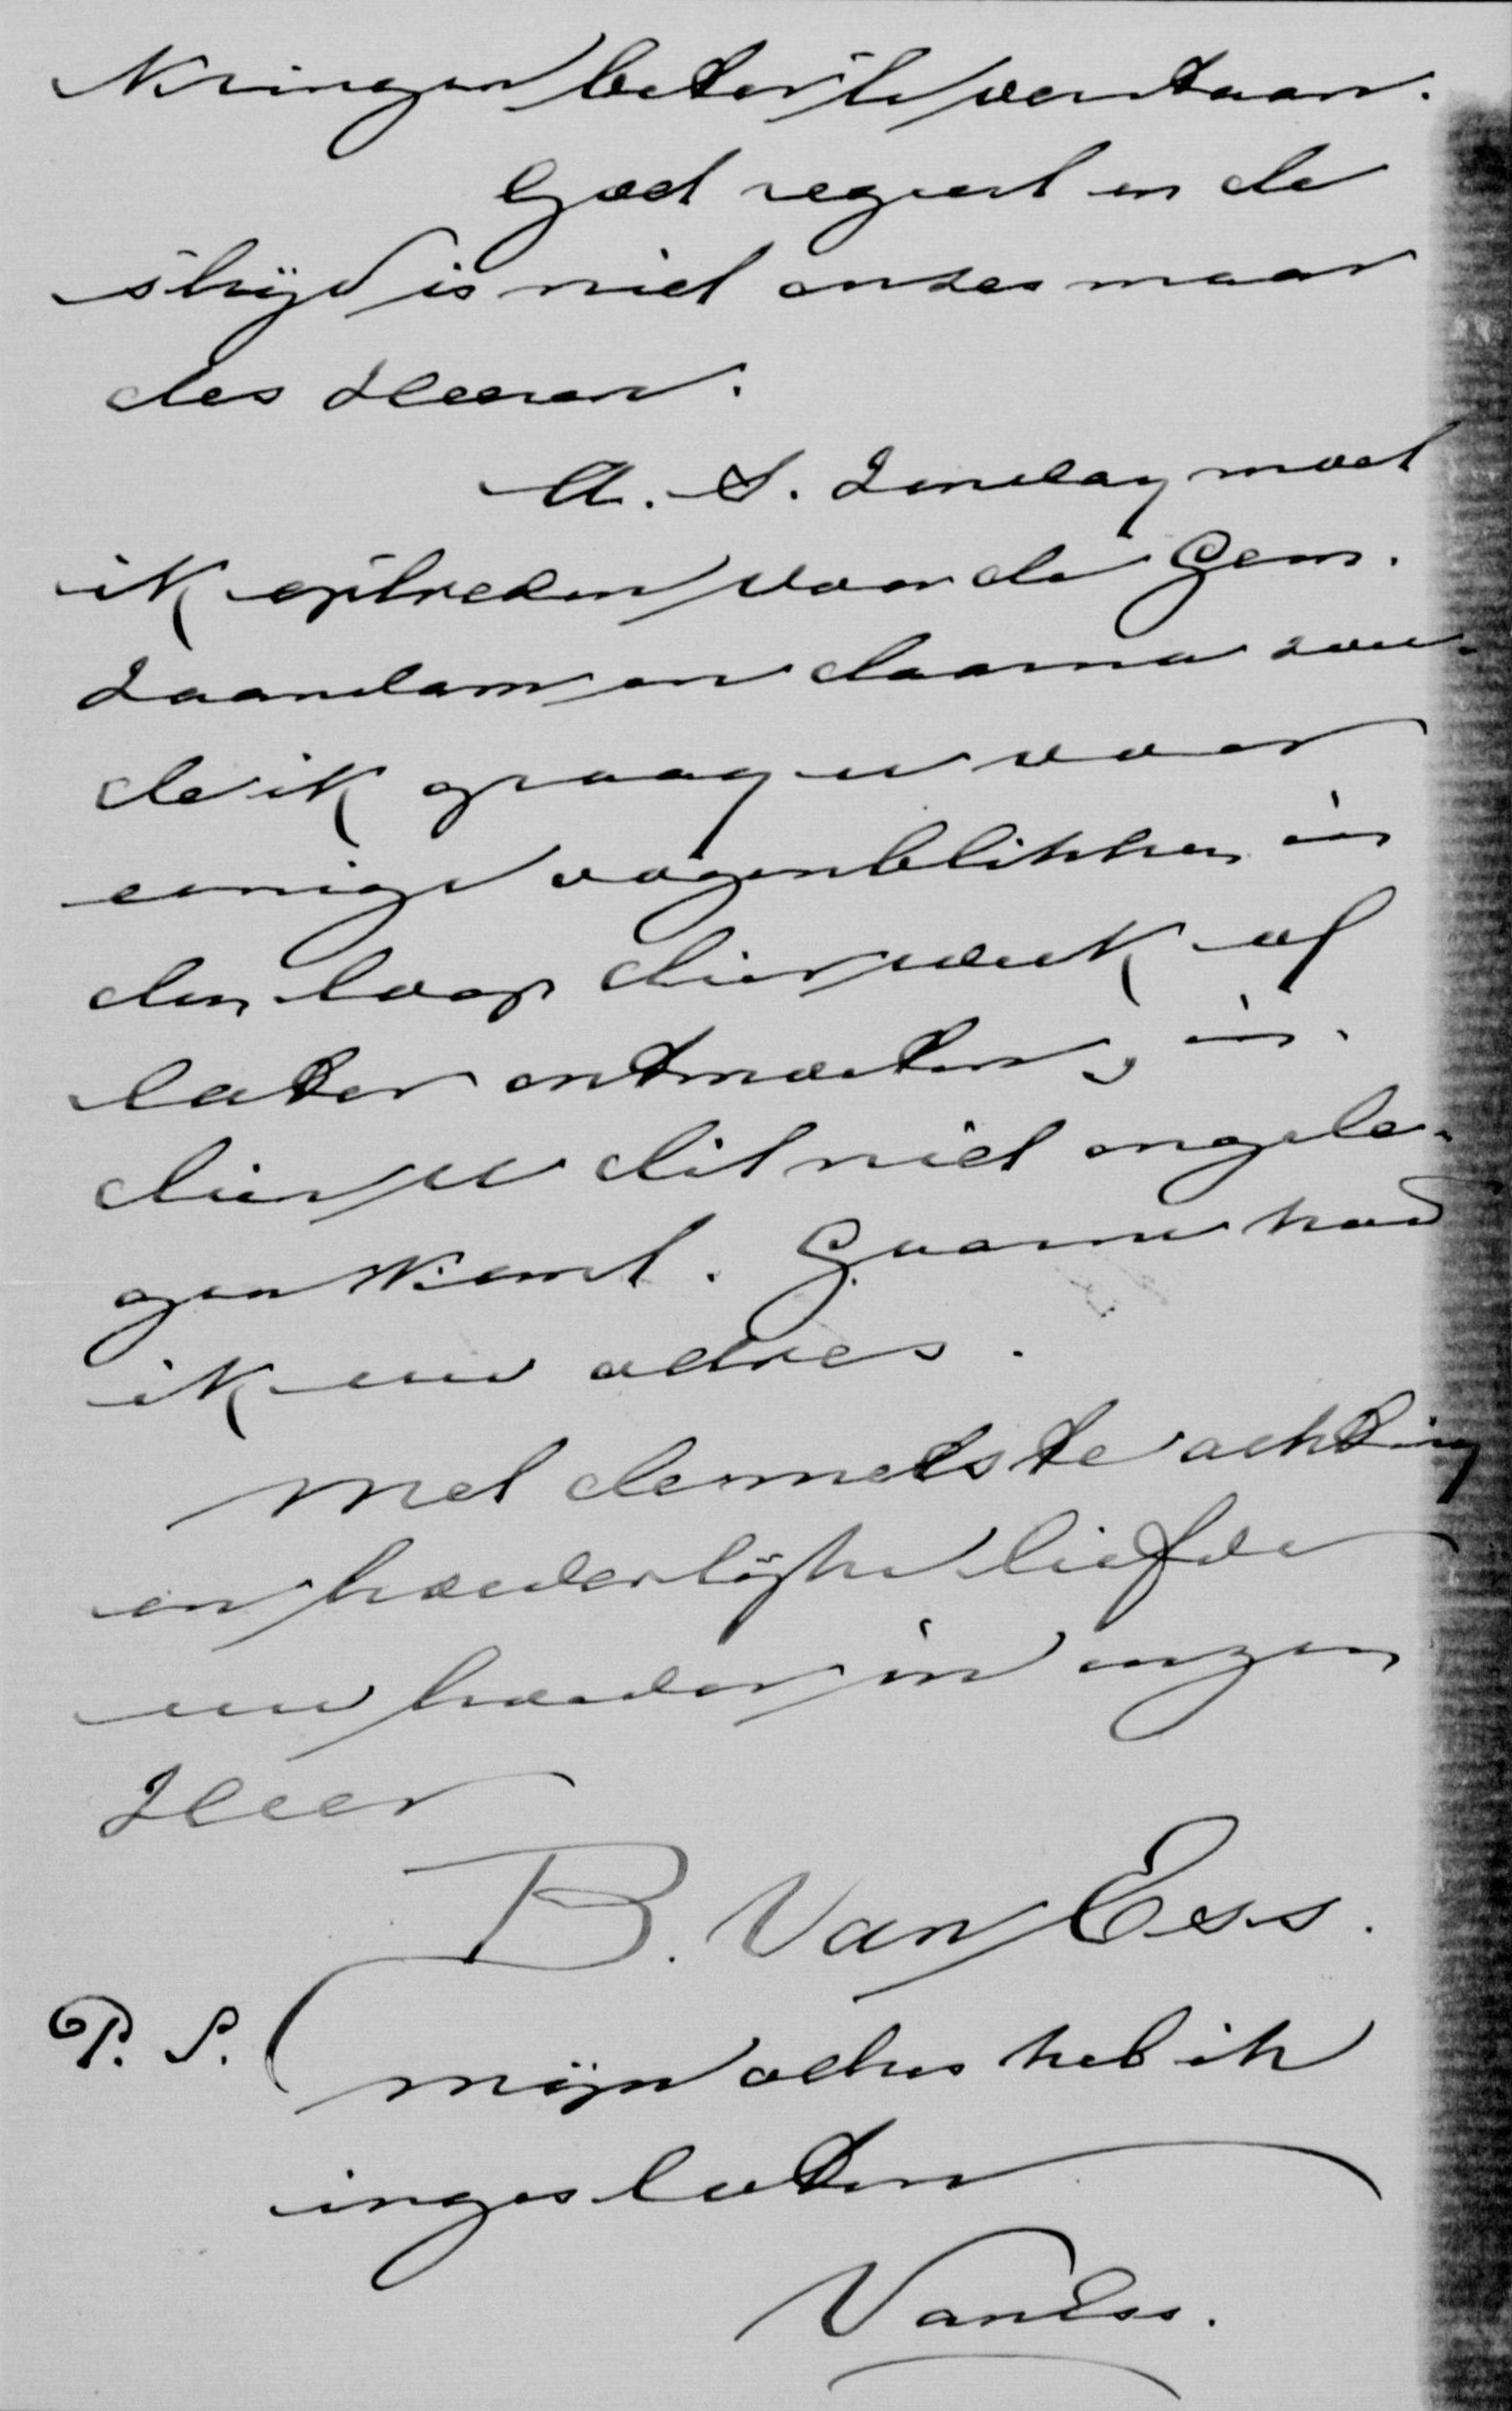 Kringen beter te verstaan.
God regeert en de
strijd is niet onzes maar
des Heeren.
A. S. Zondag moet
ik optreden voor de Gem.
Zaandam en daarna zou-
de ik graag u voor
eenige oogenblikken in
den loop dier week of
later ontmoeten, in-
dien u dit niet ongele-
gen komt. Gaarne had
ik uw adres.
Met de meeste achting
en broederlijke liefde
uw broeder in onzen
Heer
B. Van Ess.
P. S. Mijn adres heb ik
ingesloten
Van Ess.